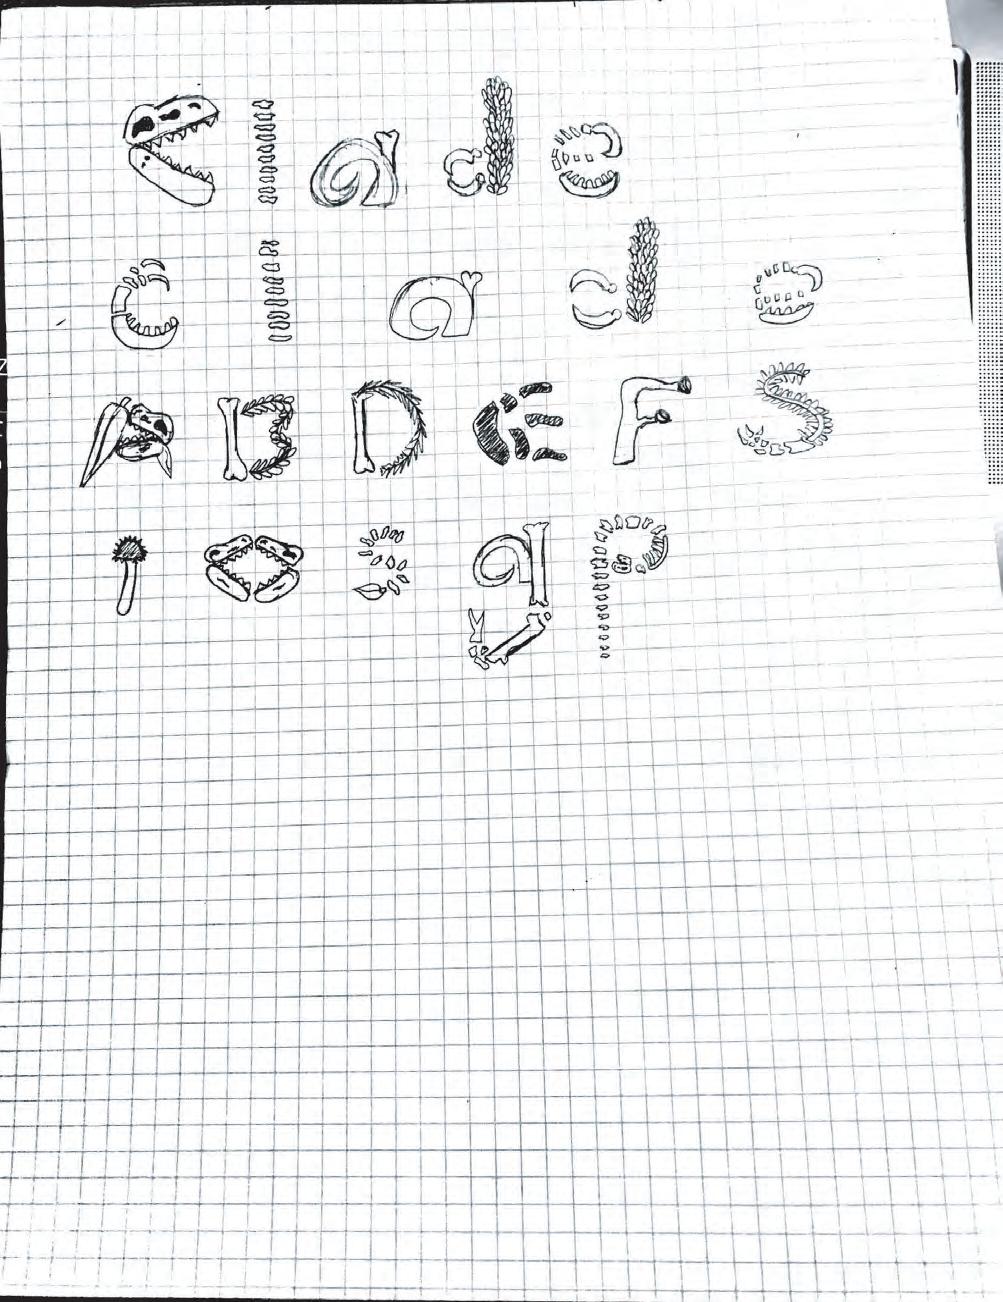 C l a d e
c l a d e
A B D E F S
i o s g p